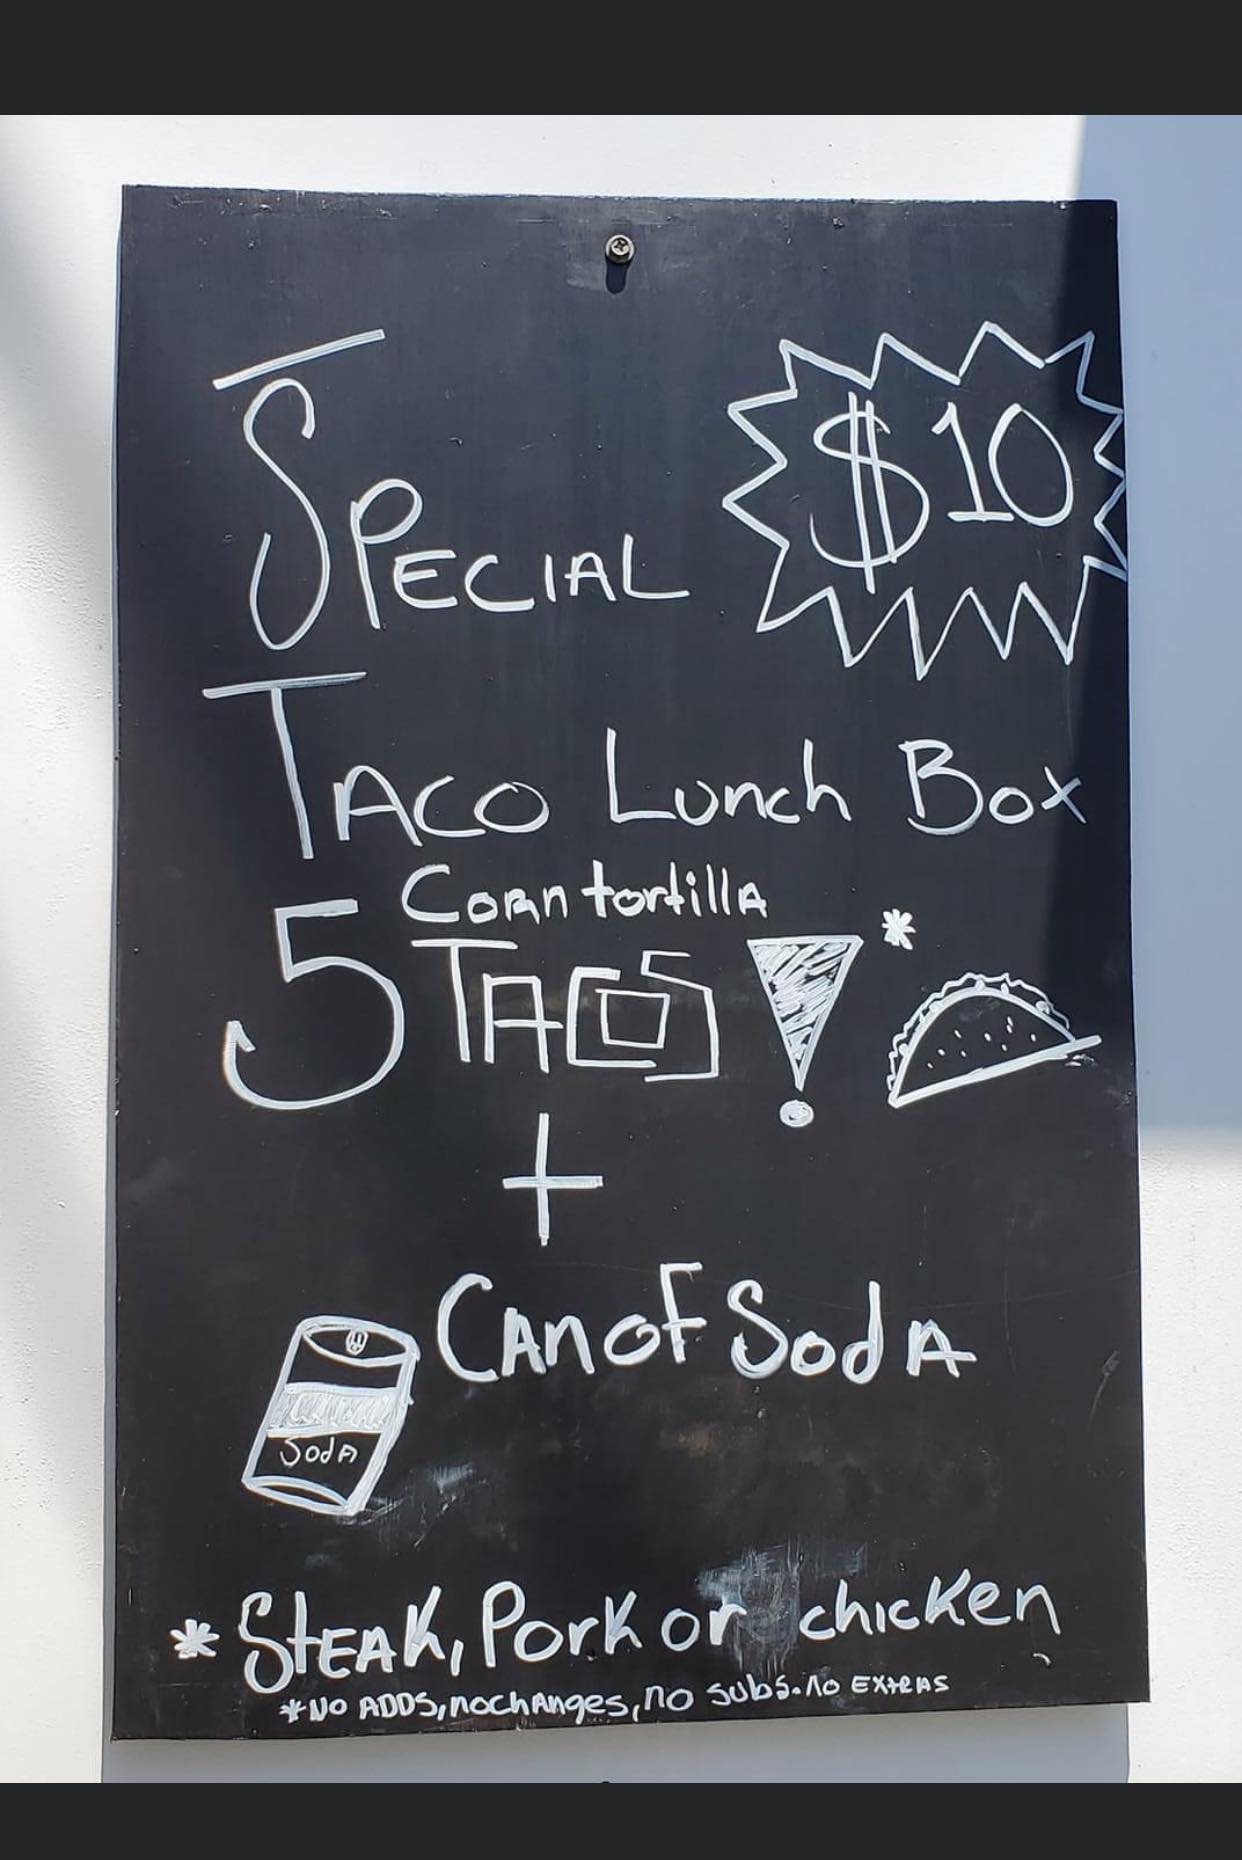 SPECIAL
$10
TACO Lunch Box
Corn tortilla
5 TACOS! *
+
CAN OF SodA
SodA
* StEAK, Pork or chicken
*NO ADDS, no chAnges, no subs. no ExtRAS